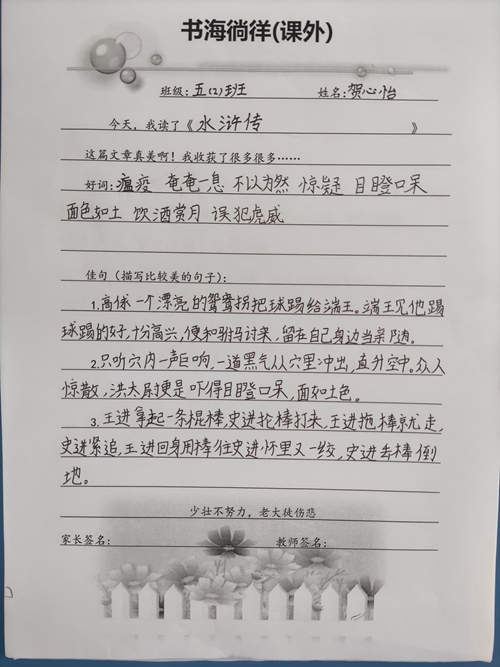 书海徜徉(课外)
班级:五(2)班 姓名:贺心怡
今天,我读了《水浒传》
这篇文章真美啊!我收获了很多很多……
好词:瘟疫 奄奄一息 不以为然 惊疑 目瞪口呆
面色如土 饮酒赏月 误犯虎威
佳句(描写比较美的句子):
1.高俅一个漂亮的鸳鸯拐把球踢给端王。端王见他踢
球踢的好,十分高兴,便和驸马讨来,留在自己身边当亲随。
2.只听穴内一声巨响,一道黑气从穴里冲出,直升空中。众人
惊散,洪太尉更是吓得目瞪口呆,面如土色。
3.王进拿起一条棍棒,史进抡棒打来,王进拖棒就走,
史进紧追,王进回身用棒往史进怀里又一绞,史进丢棒倒
地。
少壮不努力,老大徒伤悲
家长签名: 教师签名: